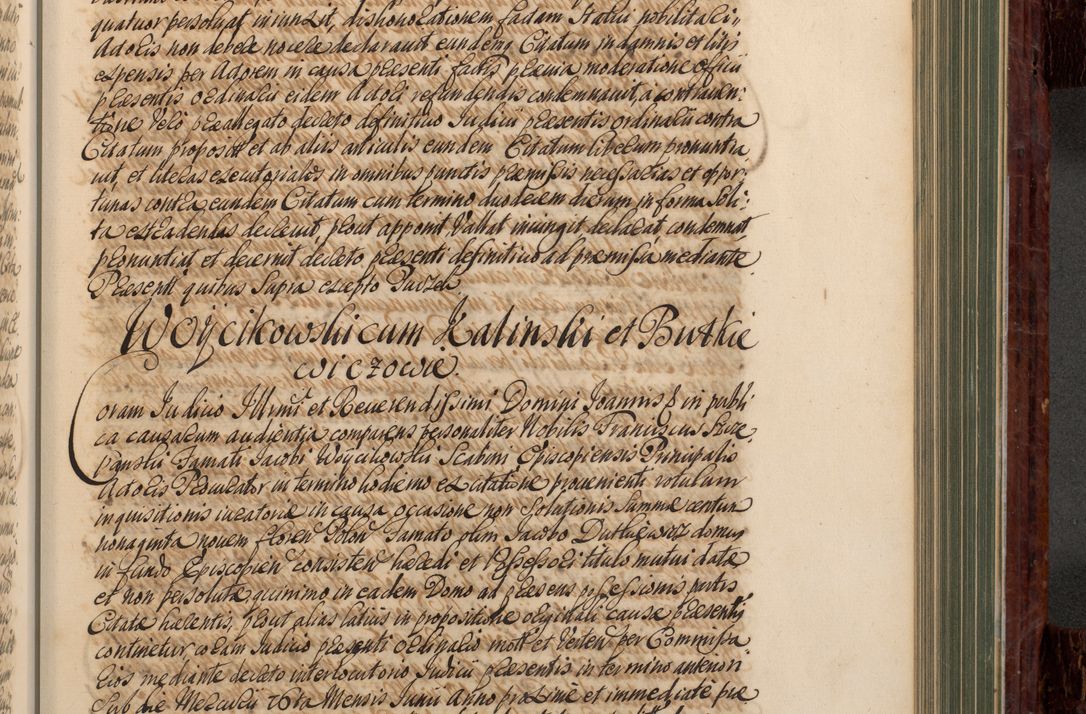 quatuor persolvat iniunxit, dishonorationem factam Statui nobilitari
Actoris non debere nocere declaravit eundemq Citatum in damnis et litis
expensis per Actorem in causa præsenti factis prævia moderatione Officii
præsentis ordinarii eidem Actori refundendis condemnavit, a contraven:
tione Vero præallegato decreto definitivo Iudicii præsentis ordinarii contra
Citatum proposit et ab aliis articulis eundem Citatum liberum pronuntia
vit, et literas executoriales in omnibus punctis præmissis necessarias et oppor:
tunas contra eundem Citatum cum termino duodecem dierum in forma Soli:
ta extradendas decrevit, prout apponit, Vallat iniungit declarat condemnat
pronuntiat et decernit decreto præsenti definitivo ad præmissa mediante
Præsenti quibus Supra excepto Paszek
Woycikowski cum Kalinski et Butkie
wiczowie.
Coram Iudicio Illrmi et Reverendissimi Domini Ioannis 8 in publi
ca causarum audientia comparens personaliter Nobilis Franciscus Szcze
panski Famati Iacobi Woycikowskii Scabini Episcopiensis Principalis
Actoris Procurator in termino hodierno ex citatione provenienti rotulum
inquisitionis iuratoriæ in causa occasione non Solutionis Summæ centum
nonaginta novem floren Polon Famato olim Iacobo Dutkiewicz domus
in fundo Episcopien consisten hæredi et Possessori titulo mutui datæ
et non persolutæ, quinimo in eadem Domo ad præsens possessionis partis
Citatæ hærentis, prout alias latius in propositione originali causæ præsentis
continetur coram Iudicio præsenti ordinario mott et Verten per Commissa
rios mediante decreto interlocutorio Iudicii præsentis in termino anteriori
Sub die Mercurii 26ta Mensis Iunii Anno proxime et immediate præ